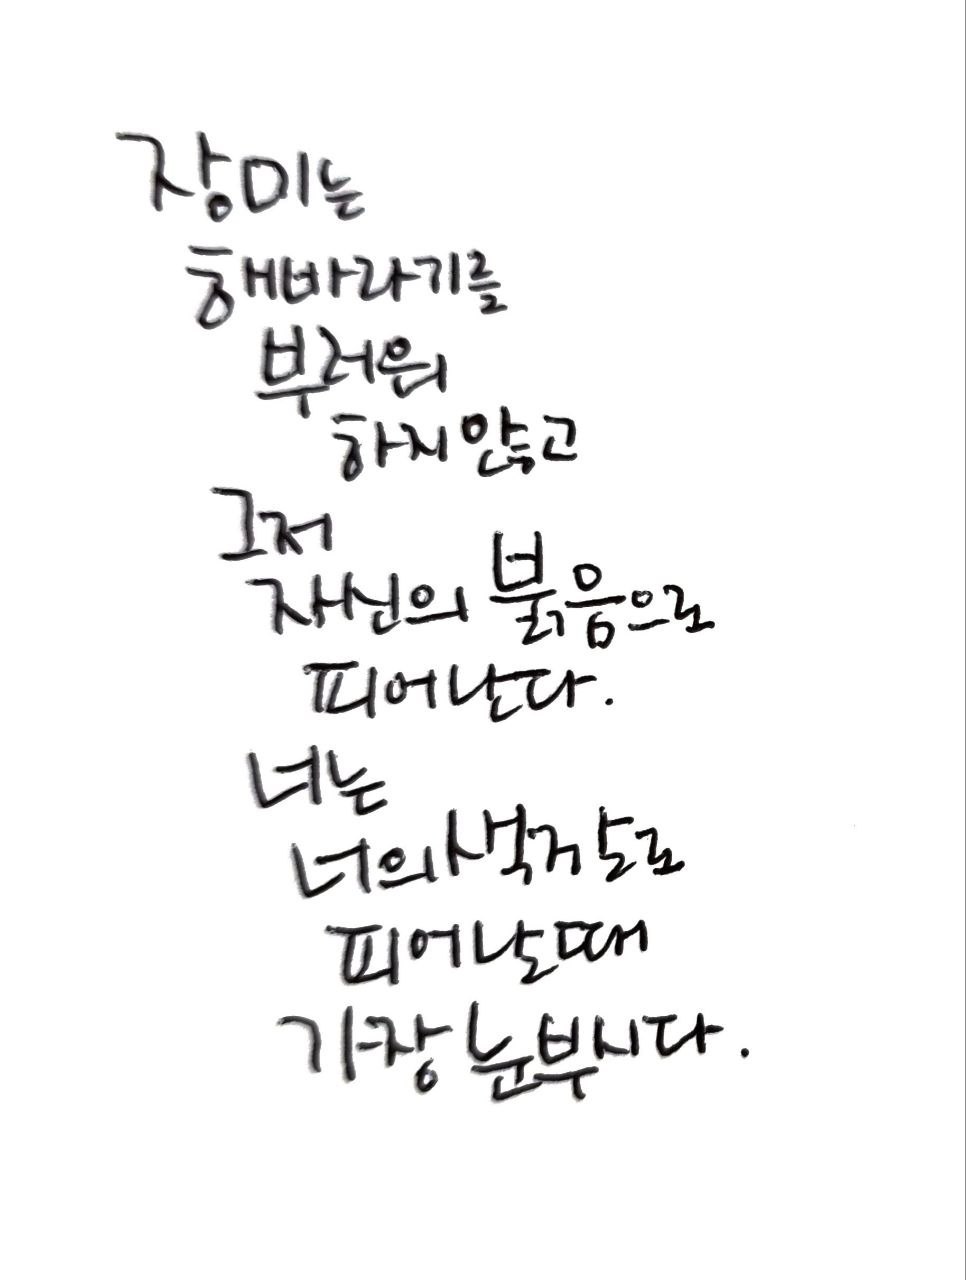 장미는
해바라기를
부러워
하지 않고
그저
자신의 붉음으로
피어난다.
너는
너의 색깔로
피어날 때
가장 눈부시다.